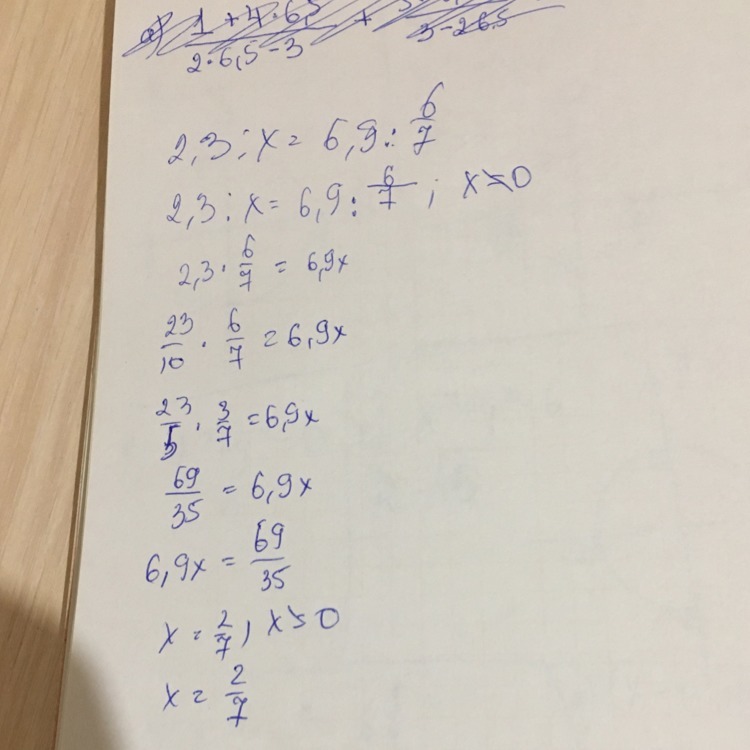 2·6,5-3
2,3:x=6,9:6/7
2,3:x=6,9:6/7; x≠0
2,3·6/7=6,9x
23/10·6/7=6,9x
23/5·3/7=6,9x
69/35=6,9x
6,9x=69/35
x=2/7, x≠0
x=2/7